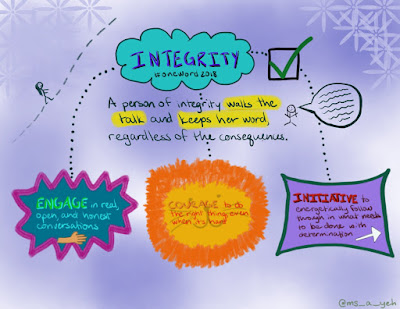 INTEGRITY
#oneword2018
A person of integrity walks the
talk and keeps her word,
regardless of the consequences.
ENGAGE in real,
open, and honest
conversations
COURAGE to do
the right thing, even
when its hard
INITIATIVE to
energetically follow
through in what needs
to be done with
determination
@ms_a_yeh